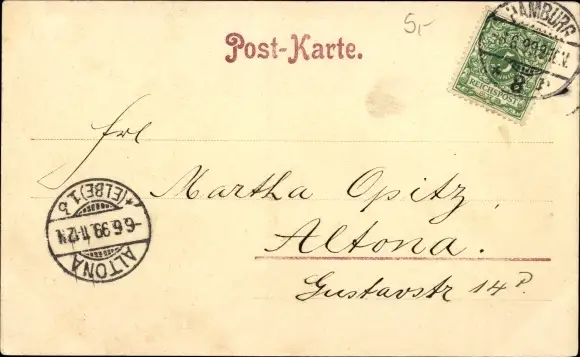 5,-
Post-Karte.
HAMBURG
REICHSPOST
Frl
Martha Opitz,
Altona.
Gustavstr 14ᵖ.
ALTONA
-6.6.99.11-12V.
*(ELBE)1 b